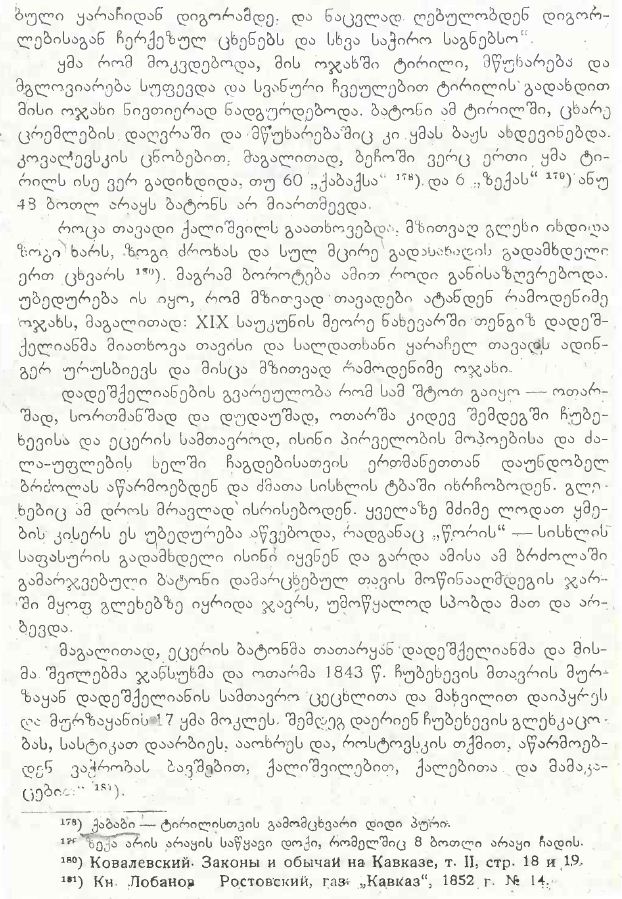 ბული ყარაჩიდან დიგორამდე. და ნაცვლად ღებულობდენ დიგორ-
ლებისაგან ჩერქეზულ ცხენებს და სხვა საჭირო საგნებსო“.
ყმა რომ მოკვდებოდა, მის ოჯახში ტირილი, მწუხარება და
მგლოვიარება სუფევდა და სვანური ჩვეულებით ტირილის გადახდით
მისი ოჯახი ნივთიერად ნადგურდებოდა. ბატონი ამ ტირილში, ცხარე
ცრემლების დაღვრაში და მწუხარებაშიც კი ყმას ბაჟს ახდევინებდა.
კოვალევსკის ცნობებით, მაგალითად, ბეჩოში ვერც ერთი ყმა ტი-
რილს ისე ვერ გადიხდიდა, თუ 60 „ქაბაქსა“ ¹⁷⁸) და 6 „ზექას“ ¹⁷⁹) ანუ
48 ბოთლ არაყს ბატონს არ მიართმევდა.
როცა თავადი ქალიშვილს გაათხოვებდა, მზითვად გლეხი იხდიდა
ზოგი ხარს, ზოგი ძროხას და სულ მცირე გადასახადის გადამხდელი
ერთ ცხვარს ¹⁸⁰). მაგრამ ბოროტება ამით როდი განისაზღვრებოდა.
უბედურება ის იყო, რომ მზითვად თავადები ატანდენ რამოდენიმე
ოჯახს, მაგალითად: XIX საუკუნის მეორე ნახევარში თენგიზ დადეშ-
ქელიანმა მიათხოვა თავისი და სალდათხანი ყარაჩელ თავადს ადინ-
გერ ურუსბიევს და მისცა მზითვად რამოდენიმე ოჯახი.
დადეშქელიანების გვარეულობა რომ სამ შტოთ გაიყო — ოთარ-
შად, სორთმანშად და დუდაუშად, ოთარშა კიდევ შემდეგში ჩუბე-
ხევისა და ეცერის სამთავროდ, ისინი პირველობის მოპოებისა და ძა-
ლა-უფლების ხელში ჩაგდებისათვის ერთმანეთთან დაუნდობელ
ბრძოლას აწარმოებდენ და ძმათა სისხლის ტბაში იხრჩობოდენ. გლე-
ხებიც ამ დროს მრავლად ისრისებოდენ. ყველაზე მძიმე ლოდათ ყმე-
ბის კისერს ეს უბედურება აწვებოდა, რადგანაც „წორის“ — სისხლის
საფასურის გადამხდელი ისინი იყვნენ და გარდა ამისა ამ ბრძოლაში
გამარჯვებული ბატონი დამარცხებულ თავის მოწინააღმდეგის ჯარ-
ში მყოფ გლეხებზე იყრიდა ჯავრს, უმოწყალოდ სპობდა მათ და არ-
ბევდა.
მაგალითად, ეცერის ბატონმა თათარყან დადეშქელიანმა და მის-
მა შვილებმა ჯანსუხმა და ოთარმა 1843 წ. ჩუბეხევის მთავრის მურ-
ზაყან დადეშქელიანის სამთავრო ცეცხლითა და მახვილით დაიპყრეს
და მურზაყანის 17 ყმა მოკლეს. შემდეგ დაერიენ ჩუბეხევის გლეხკაცო-
ბას, სასტიკათ დაარბიეს, ააოხრეს და, როსტოვსკის თქმით, აწარმოებ-
დენ ვაჭრობას ბავშვებით, ქალიშვილებით, ქალებითა და მამაკა-
ცებით“ ¹⁸¹).
¹⁷⁸) ქაბაბი — ტირილისთვის გამომცხვარი დიდი პური.
¹⁷⁹ ზექა არის არაყის საწყავი დოქი, რომელშიც 8 ბოთლი არაყი ჩადის.
¹⁸⁰) Ковалевский. Законы и обычай на Кавказе, т. II, стр. 18 и 19.
¹⁸¹) Кн. Лобанов Ростовский, газ. „Кавказ“, 1852 г. № 14.